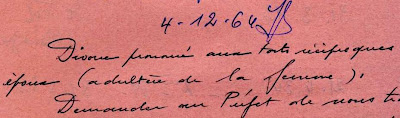 4-12-64
Divorce prononcé aux torts réciproques
époux (adultère de la femme).
Demander au Préfet de nous